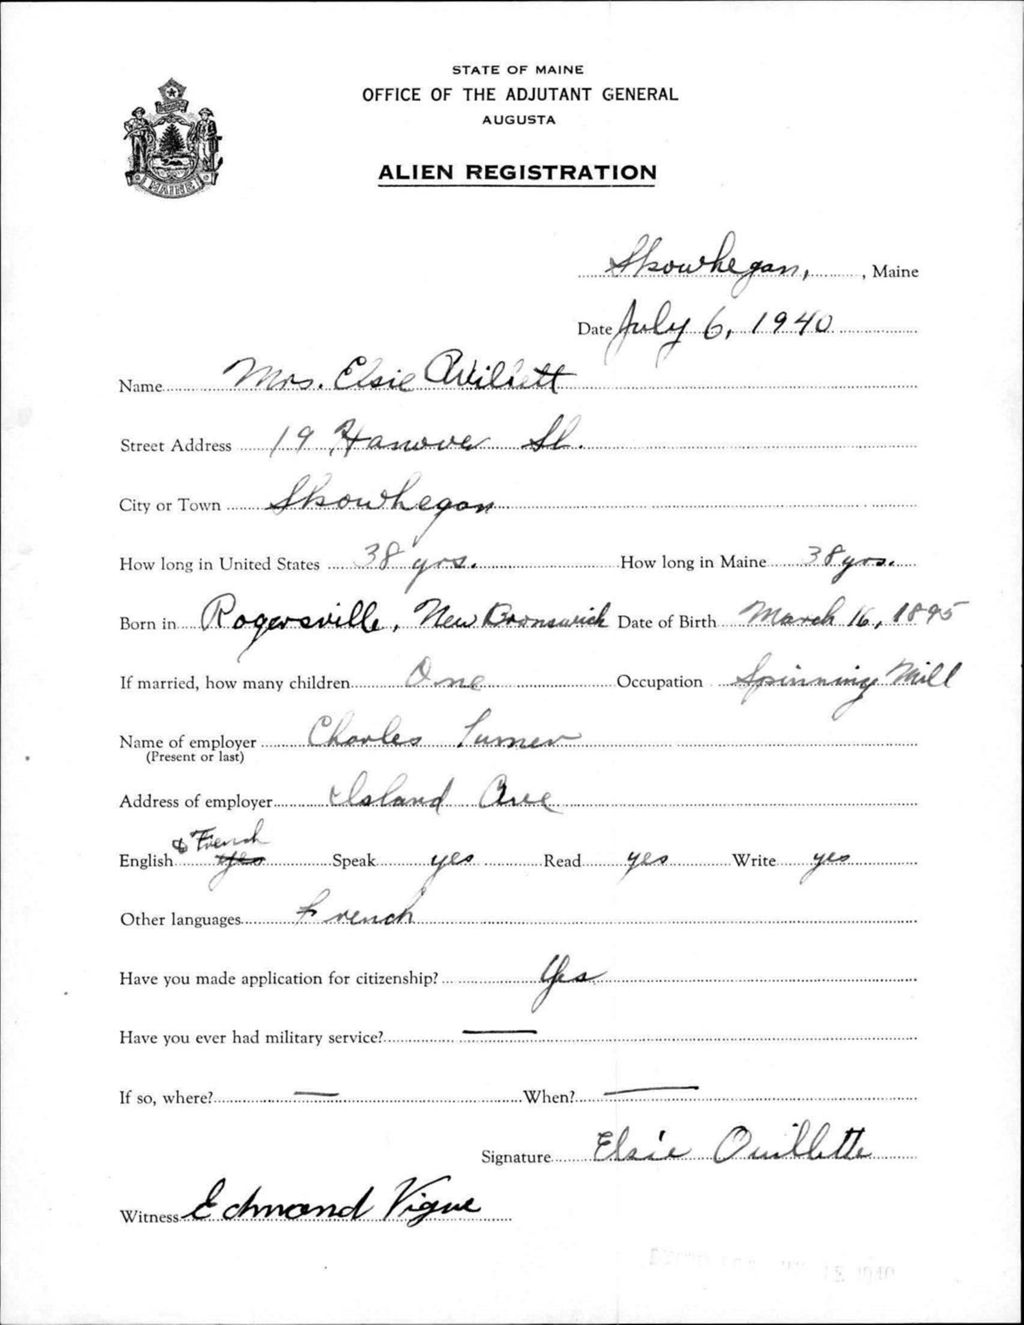 STATE OF MAINE
OFFICE OF THE ADJUTANT GENERAL
AUGUSTA
ALIEN REGISTRATION
MAINE
Skowhegan, , Maine
Date July 6, 1940
Name Mrs. Elsie
Street Address 19 Hanover St.
City or Town Skowhegan
How long in United States 38 yrs. How long in Maine 38 yrs.
Born in Rogersville, New Brunswick Date of Birth March 16, 1895
If married, how many children One Occupation Spinning Mill
Name of employer Charles
(Present or last)
Address of employer Island Ave
& French
English Yes Speak yes Read yes Write yes
Other languages French
Have you made application for citizenship? Yes
Have you ever had military service? —
If so, where? — When? —
Signature Elsie Ouillette
Witness Edmond Vigue